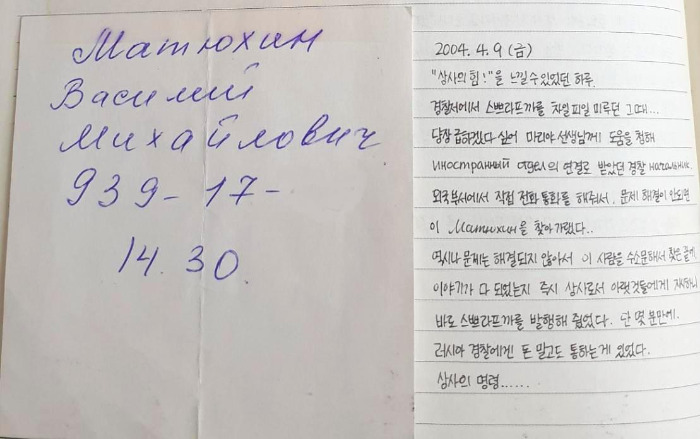 Матюхин
Василий
Михайлович
939-17-
14.30.
2004. 4. 9 (금)
"상사의 힘!"을 느낄 수 있었던 하루.
경찰서에서 스쁘라프까를 차일피일 미루던 그때...
당장 급하겠다 싶어 마리아 선생님께 도움을 청해
иностранный отдел의 연결로 받았던 경찰 начальник.
외국부서에서 직접 전화 통화를 해줘서, 문제 해결이 안되면
이 Матюхин을 찾아가랬다..
역시나 문제는 해결되지 않아서 이 사람을 수소문해서 찾은 끝에
이야기가 다 되었는지 즉시 상사로서 아랫것들에게 지시하니
바로 스쁘라프까를 발행해 줬었다. 단 몇 분만에.
러시아 경찰에겐 돈 말고도 통하는게 있었다.
상사의 명령......